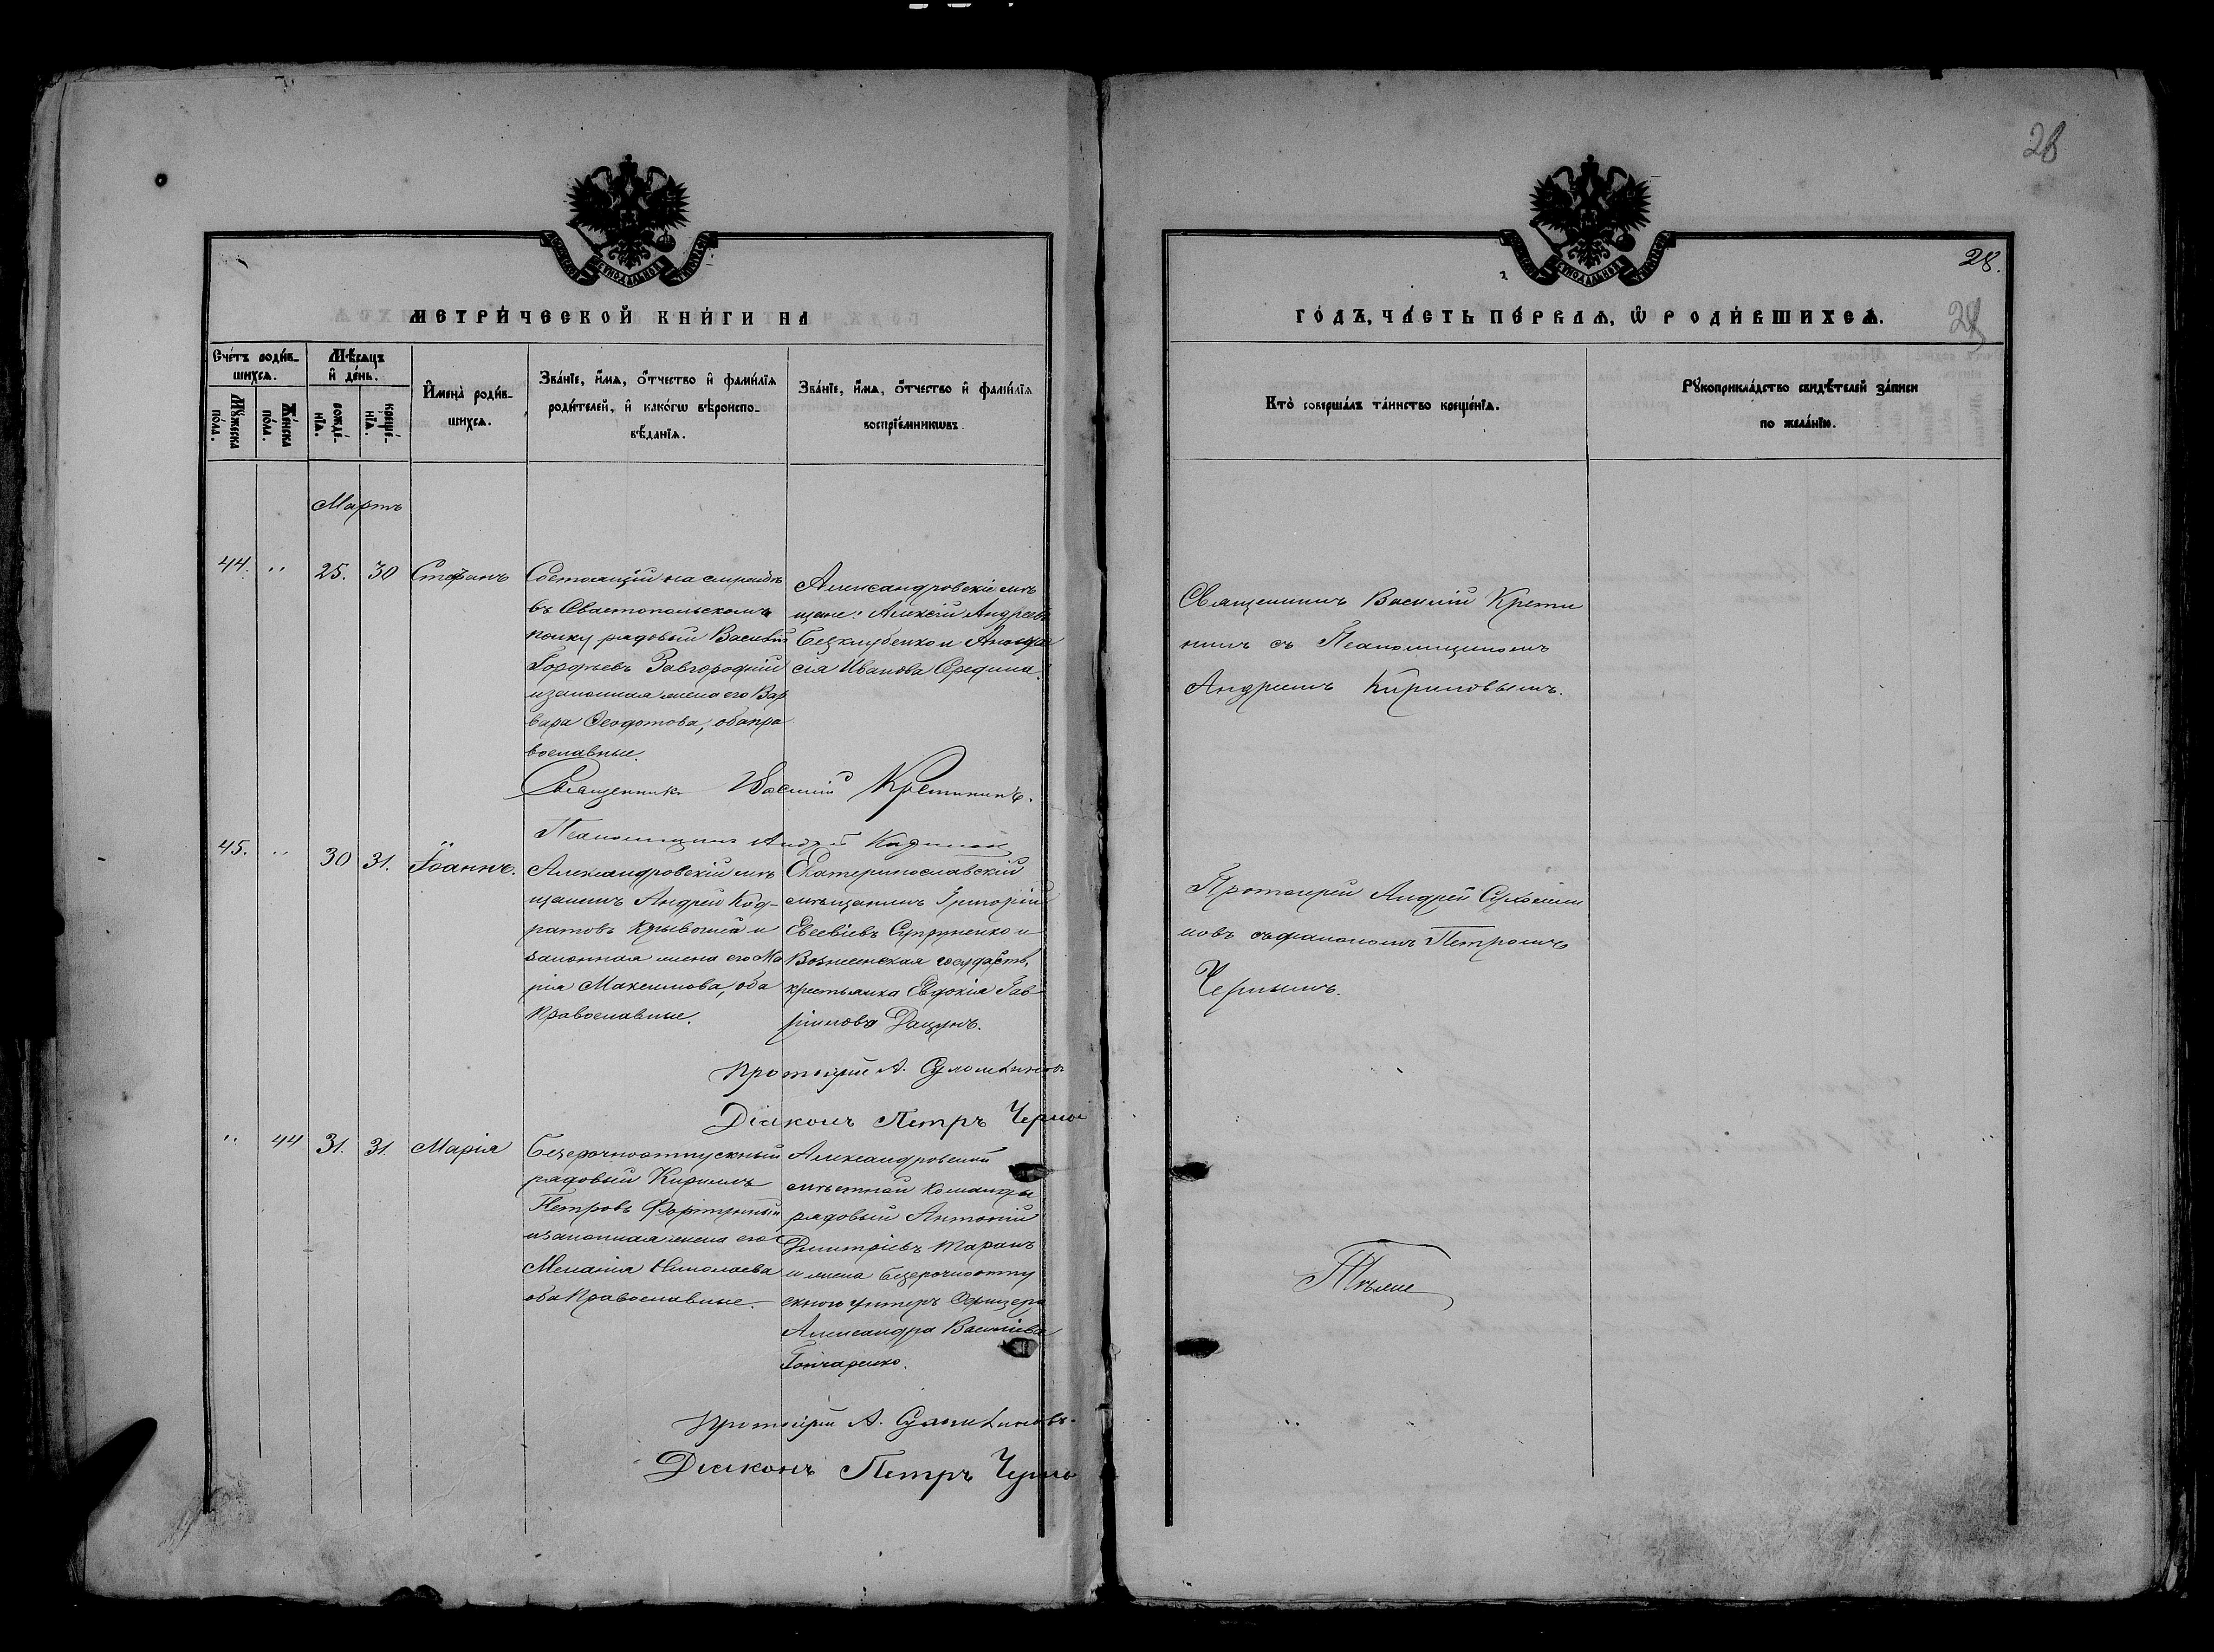 28
28.
28
МЕТРИ́ЧЕСКОЙ КНИ́ГИ НА
ГО́ДЪ, ЧА́СТЬ ПЕ́РВАЯ, Ѡ҆ РОДИ́ВШИХСЯ.
Сче́тъ роди́в-
шихся.
Мꙋ́жеска
по́ла.
Же́нска
по́ла.
Мѣ́сяцъ
и҆ де́нь.
рожде́-
нїя.
креще́-
нїя.
И҆мена̀ роди́в-
шихся.
Зва́нїе, и҆́мя, ѻ҆́тчество и҆ фами́лїя
роди́телей, и҆ како́гѡ вѣроиспо-
вѣ́данїя.
Зва́нїе, и҆́мя, ѻ҆́тчество и҆ фами́лїя
воспрїе́мникѡвъ.
Кто̀ соверша́лъ та́инство креще́нїя.
Рꙋкоприкла́дство свидѣ́телей за́писи
по жела́нїю.
Мартъ
44. " 25. 30 Стефанъ
Состоящій на службѣ
въ Севастопольскомъ
полку рядовый Василій
Гордѣевъ Завгородній
и законная жена его Вар
вара Феодотова, оба пра
вославные.
Александровскіе мѣ
щане: Алексій Андреевъ
Безклубенко и Анаста
сія Иванова Середина.
Священникъ Василій Крети
нинъ съ Псаломщикомъ
Андреемъ Кириловымъ.
Священникъ Василій Кретининъ.
Псаломщикъ Андрей Кирилов
45. " 30 31. Іоаннъ.
Александровскій мѣ
щанинъ Андрей Код-
ратовъ Крывошея и
законная жена его Ма
рія Максимова, оба
православные.
Екатеринославскій
мѣщанинъ Григорій
Евсевіевъ Супруненко и
Вознесенская государств.
крестьянка Евдокія Гав-
рилова Дацунъ.
Протоіерей Андрей Сухомли
новъ съ діакономъ Петромъ
Чернымъ.
Протоіерей А. Сухомлиновъ
Діаконъ Петръ Черный
" 44 31. 31. Марія
Безсрочноотпускный
рядовый Кирилъ
Петровъ
и законная жена его
Меланія Николаева
оба Православные.
Александровской
мѣстной команды
рядовый Антоній
Димитріевъ Таранъ
и жена безсрочноотпу
скного унтеръ Офицера
Александра Василіева
Гончаренко.
Тѣже
Протоіерей А. Сухомлиновъ.
Діаконъ Петръ Черный